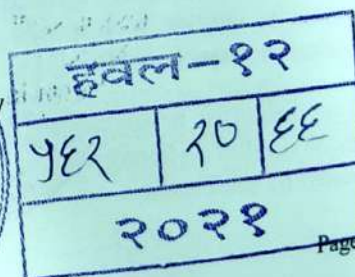 हवल-१२
५६२ २० ६६
२०२१
Page